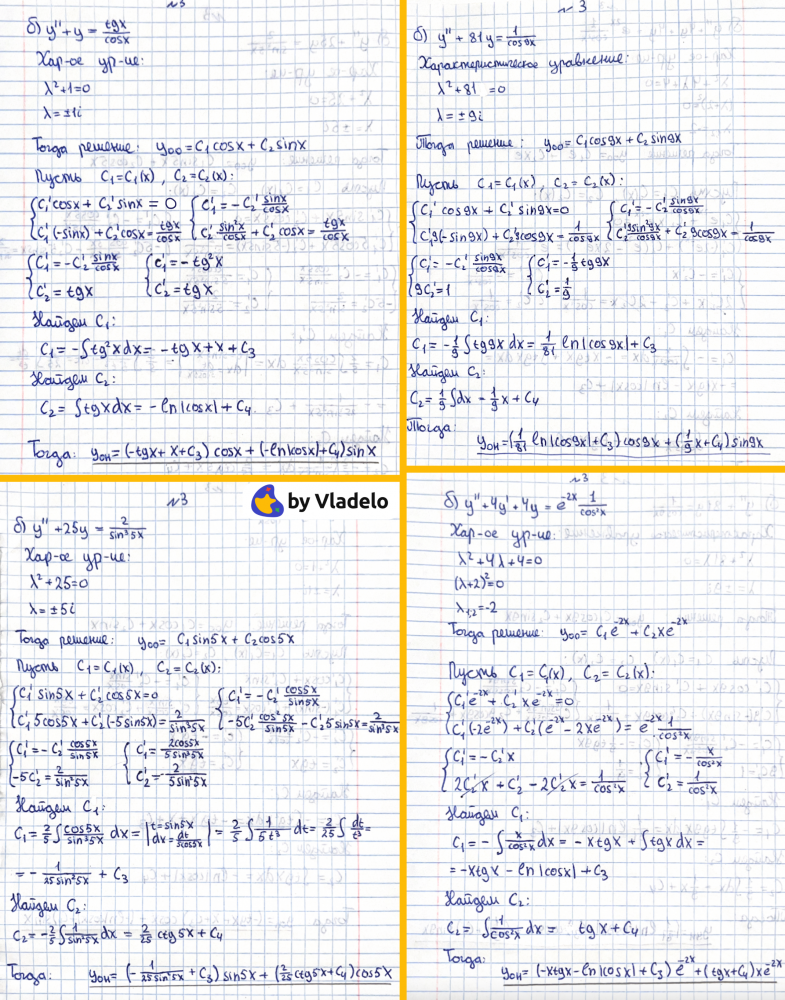 №3
б) y'' + y = tgx/cosx
Хар-ое ур-ие:
λ² + 1 = 0
λ = ±1i
Тогда решение: yoo = C₁cosx + C₂sinx
Пусть C₁ = C₁(x), C₂ = C₂(x):
{C₁'cosx + C₂'sinx = 0 {C₁' = -C₂' sinx/cosx
{C₁'(-sinx) + C₂'cosx = tgx/cosx {C₂' sin²x/cosx + C₂'cosx = tgx/cosx
{C₁' = -C₂' sinx/cosx {C₁' = -tg²x
{C₂' = tgx {C₂' = tgx
Найдем C₁:
C₁ = -∫tg²xdx = -tgx + x + C₃
Найдем C₂:
C₂ = ∫tgxdx = -ln|cosx| + C₄
Тогда: yон = (-tgx + x + C₃)cosx + (-ln|cosx| + C₄)sinx
№3
б) y'' + 81y = 1/cos9x
Характеристическое уравнение:
λ² + 81 = 0
λ = ±9i
Тогда решение: yoo = C₁cos9x + C₂sin9x
Пусть C₁ = C₁(x), C₂ = C₂(x):
{C₁'cos9x + C₂'sin9x = 0 {C₁' = -C₂' sin9x/cos9x
{C₁'9(-sin9x) + C₂'9cos9x = 1/cos9x {C₂' 9sin²9x/cos9x + C₂'9cos9x = 1/cos9x
{C₁' = -C₂' sin9x/cos9x {C₁' = -1/9 tg9x
{9C₂' = 1 {C₂' = 1/9
Найдем C₁:
C₁ = -1/9 ∫tg9xdx = 1/81 ln|cos9x| + C₃
Найдем C₂:
C₂ = 1/9 ∫dx - 1/9 x + C₄
Тогда:
yон = (1/81 ln|cos9x| + C₃)cos9x + (1/9 x + C₄)sin9x
№3
by Vladelo
б) y'' + 25y = 2/sin³5x
Хар-ое ур-ие:
λ² + 25 = 0
λ = ±5i
Тогда решение: yoo = C₁sin5x + C₂cos5x
Пусть C₁ = C₁(x), C₂ = C₂(x):
{C₁'sin5x + C₂'cos5x = 0 {C₁' = -C₂' cos5x/sin5x
{C₁'5cos5x + C₂'(-5sin5x) = 2/sin³5x {-5C₂' cos²5x/sin5x - C₂'5sin5x = 2/sin³5x
{C₁' = -C₂' cos5x/sin5x {C₁' = 2cos5x/5sin³5x
{-5C₂' = 2/sin²5x {C₂' = -2/5sin²5x
Найдем C₁:
C₁ = 2/5 ∫cos5x/sin³5x dx = |t = sin5x, dx = dt/5cos5x| = 2/5 ∫1/5t³ dt = 2/25 ∫dt/t³ =
= -1/25sin²5x + C₃
Найдем C₂:
C₂ = -2/5 ∫1/sin²5x dx = 2/25 ctg5x + C₄
Тогда: yон = (-1/25sin²5x + C₃)sin5x + (2/25 ctg5x + C₄)cos5x
№3
б) y'' + 4y' + 4y = e⁻²ˣ 1/cos²x
Хар-ое ур-ие:
λ² + 4λ + 4 = 0
(λ+2)² = 0
λ₁,₂ = -2
Тогда решение: yoo = C₁e⁻²ˣ + C₂xe⁻²ˣ
Пусть C₁ = C₁(x), C₂ = C₂(x):
{C₁'e⁻²ˣ + C₂'xe⁻²ˣ = 0
{C₁'(-2e⁻²ˣ) + C₂'(e⁻²ˣ - 2xe⁻²ˣ) = e⁻²ˣ 1/cos²x
{C₁' = -C₂'x {C₁' = -x/cos²x
{2C₂'x + C₂' - 2C₂'x = 1/cos²x {C₂' = 1/cos²x
Найдем C₁:
C₁ = -∫x/cos²x dx = -xtgx + ∫tgxdx =
= -xtgx - ln|cosx| + C₃
Найдем C₂:
C₂ = ∫1/cos²x dx = tgx + C₄
Тогда:
yон = (-xtgx - ln|cosx| + C₃)e⁻²ˣ + (tgx + C₄)xe⁻²ˣ